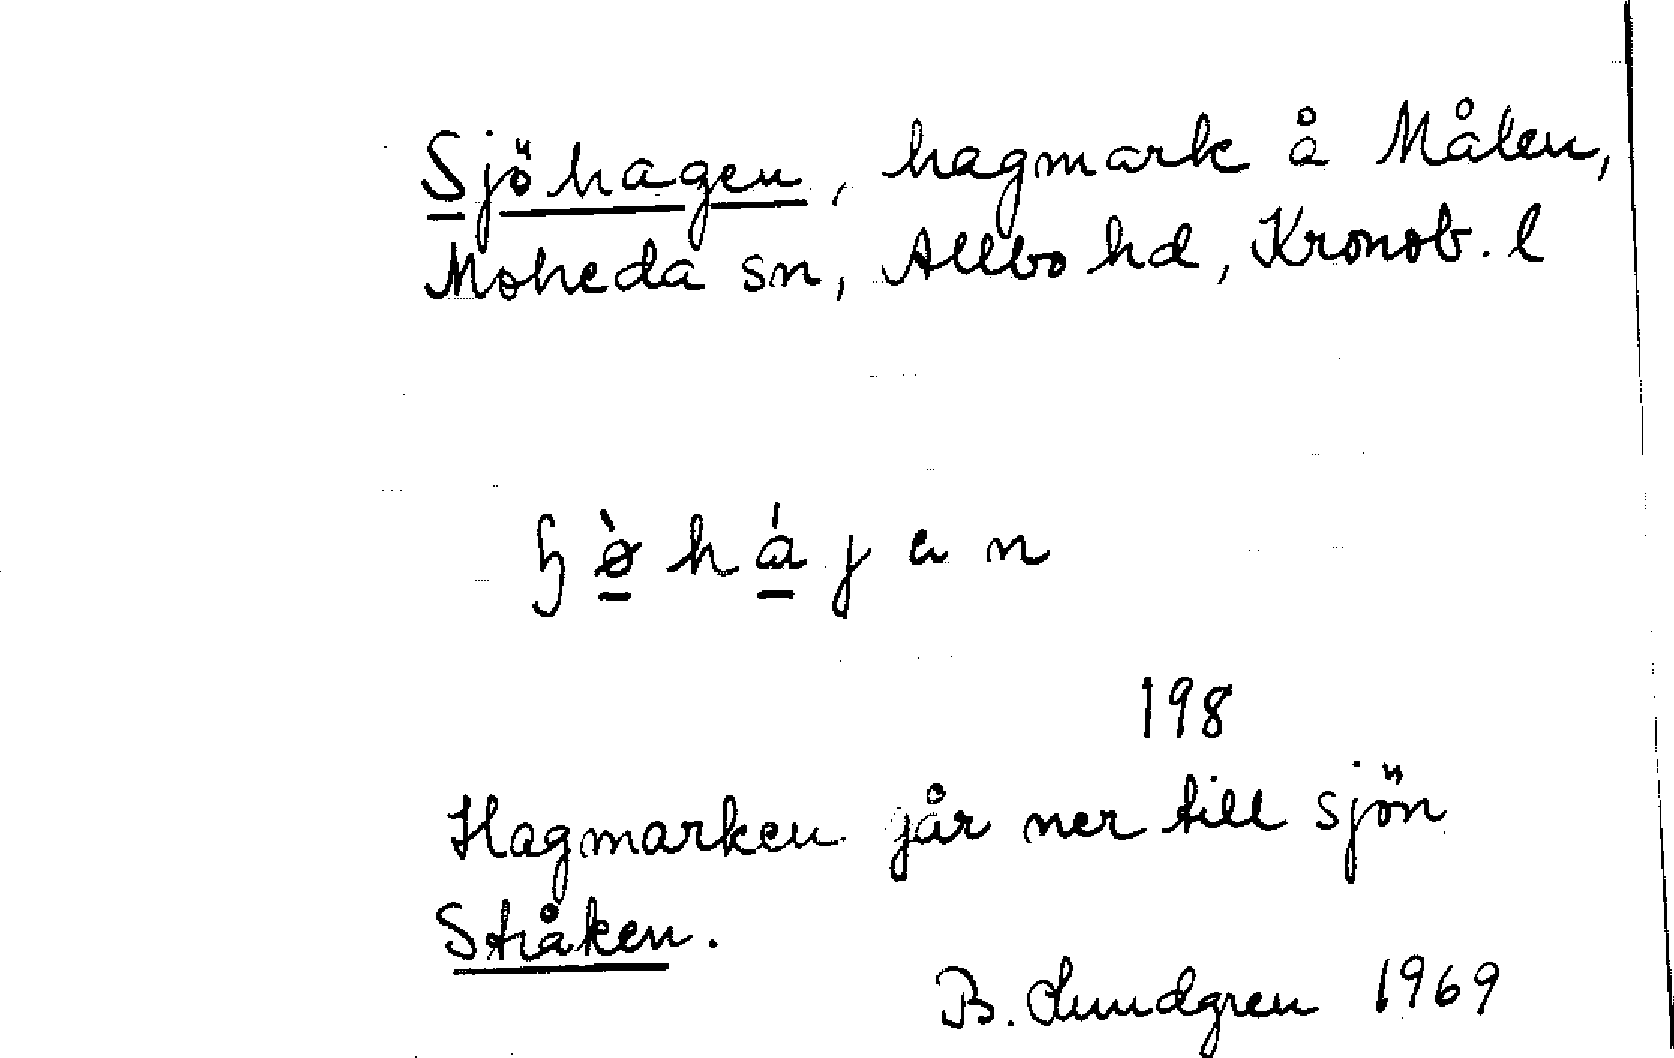 Sjöhagen, hagmark å Målen,
Moheda sn, Allbo hd, Kronob. l
ɧø̠̀há̠jen
198
Hagmarken går ner till sjön
Stråken.
B. Lundgren 1969